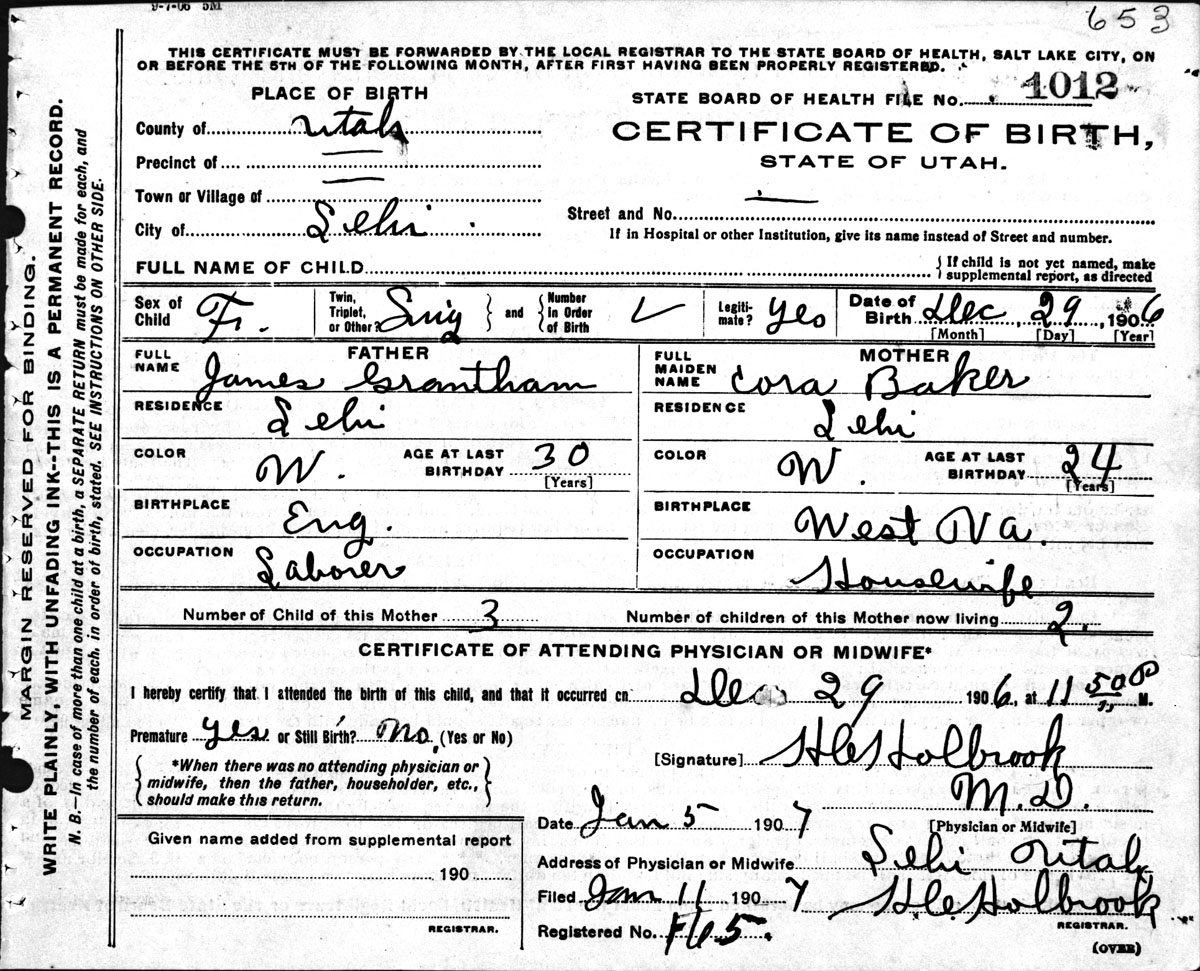 9-7-06 5M
653
THIS CERTIFICATE MUST BE FORWARDED BY THE LOCAL REGISTRAR TO THE STATE BOARD OF HEALTH, SALT LAKE CITY, ON
OR BEFORE THE 5TH OF THE FOLLOWING MONTH, AFTER FIRST HAVING BEEN PROPERLY REGISTERED.
PLACE OF BIRTH
STATE BOARD OF HEALTH FILE No. 1012
County of Utah
CERTIFICATE OF BIRTH,
Precinct of
STATE OF UTAH.
Town or Village of
Street and No.
City of Lehi
If in Hospital or other Institution, give its name instead of Street and number.
FULL NAME OF CHILD
{ If child is not yet named, make
supplemental report, as directed
Sex of Child F. Twin, Triplet, or Other? Sing } and { Number in Order of Birth Legiti-mate? Yes Date of Birth Dec, 29, 1906
[Month] [Day] [Year]
FATHER
MOTHER
FULL NAME James Grantham
FULL MAIDEN NAME Cora Baker
RESIDENCE Lehi
RESIDENCE Lehi
COLOR W. AGE AT LAST BIRTHDAY 30 [Years]
COLOR W. AGE AT LAST BIRTHDAY 24 [Years]
BIRTHPLACE Eng.
BIRTHPLACE West Va.
OCCUPATION Laborer
OCCUPATION Housewife
Number of Child of this Mother 3 Number of children of this Mother now living 2.
CERTIFICATE OF ATTENDING PHYSICIAN OR MIDWIFE*
I hereby certify that I attended the birth of this child, and that it occurred on Dec 29 1906, at 11 50 P M.
Premature yes or Still Birth? No. (Yes or No)
[Signature] H C Holbrook
M.D.
{ *When there was no attending physician or
midwife, then the father, householder, etc.,
should make this return. }
Date Jan 5 1907 [Physician or Midwife]
Given name added from supplemental report
190
REGISTRAR.
Address of Physician or Midwife. Lehi Utah
Filed Jan 11 1907 H C Holbrook
REGISTRAR.
Registered No. 165.
(OVER)
MARGIN RESERVED FOR BINDING.
WRITE PLAINLY, WITH UNFADING INK--THIS IS A PERMANENT RECORD.
N. B.—In case of more than one child at a birth, a SEPARATE RETURN must be made for each, and
the number of each, in order of birth, stated. SEE INSTRUCTIONS ON OTHER SIDE.